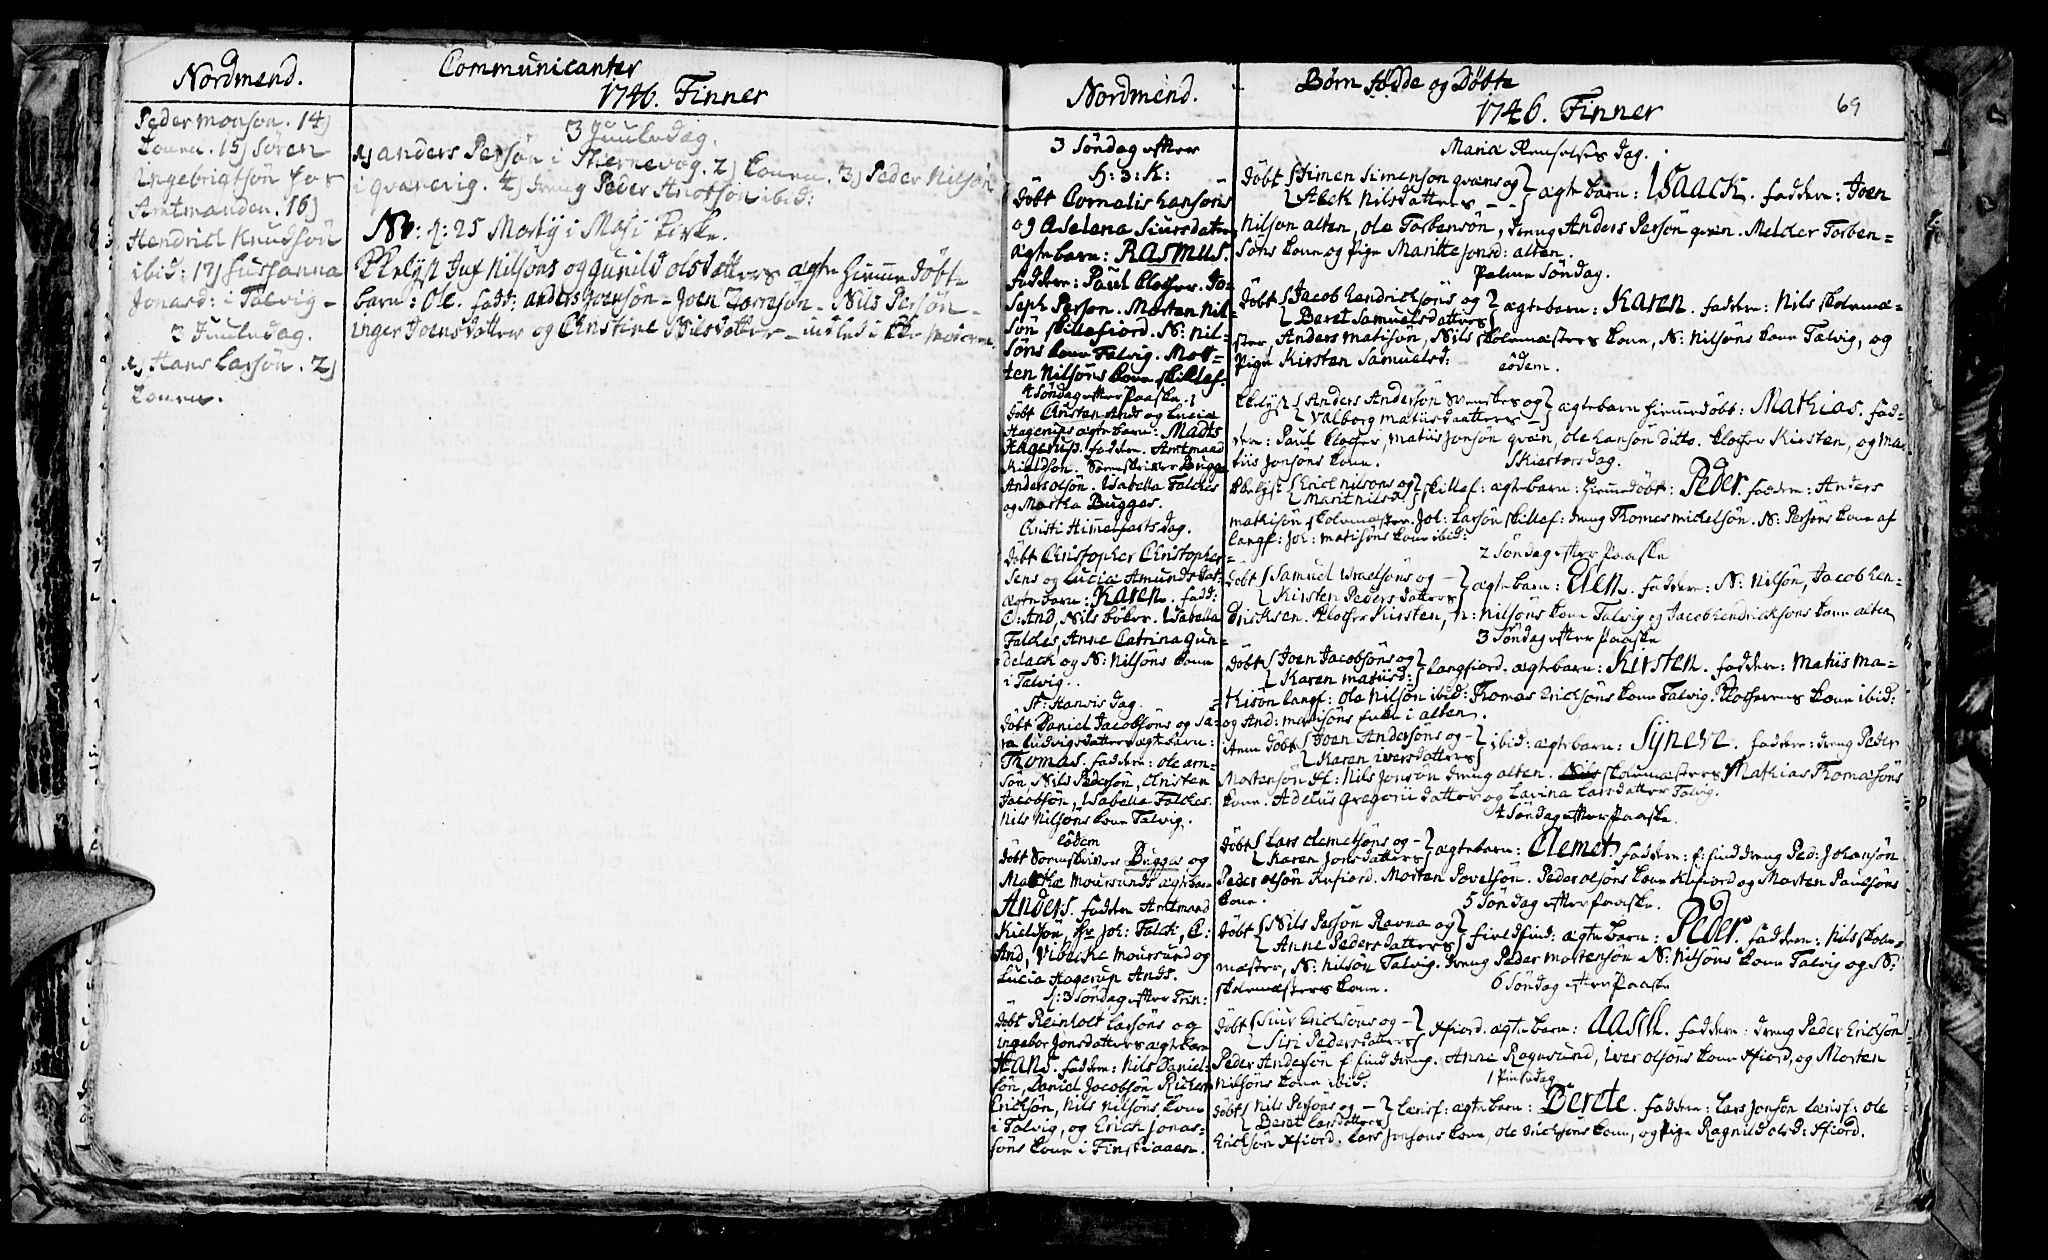 Nordmend.
Peder monson. 14)
konen. 15) Sören
Ingebrigtsön hos
Amtmanden. 16)
Hendrich Knudsön
ibid: 17) Susanna
Jonasd: i Talvig -
3 Juuledag.
1) Hans Larsön. 2)
konen.
Communicanter
1746. Finner
3 Juuledag.
1) anders Persön i Stiernevog. 2) konen. 3) Peder Nilsön
i qvænvig. 4) dreng Peder ibid:
No: 1: 25 Martij i Masi kirke.
Nilsöns og gunild olsdatters ægte hiemedöbte
barn: Ole. fadd: anders Jonsön - Joen - Nils Persön -
inger Joensdatter og Christine Nilsdatter -
Nordmend.
3 Söndag efter
H: 3: K:
döbt Cornelis hansöns
og Adelena Siursdatters
ægtebarn: RASMUS.
faddere: Paul klocker. Jo-
seph Person. Morten Nil-
sön skillefiord. N: Nil-
söns kone Talvig. Mor-
ten Nilsöns kone skillef:
4 Söndag efter Paaske.
döbt Christen Ands og Lucia
Hagerups ægtebarn: Madts
Hagerup. faddere. Amtmand
Kieldsön. Sorenskriver Bugge
Anders olsön. Isabella Falches
og Martha Bugges.
Christi Himmelfarts dag.
döbt Christopher Christopher-
sens og Lucia Amunds dat-
ægtebarn: Karen. fadd:
C: And, Nils böker. Isabella
Falches, Anne Catrina Gun-
delach og N: Nilsöns kone
i Talvig.
St: Hanvis dag.
döbt Daniel Jacobsöns og Sa-
ra Ludvigsdatters ægtebarn:
Thomas. faddere: ole arn-
sön, Nils Pedersön, Christen
Jacobsön, Isabella Falches
Nils Nilsöns kone Talvig.
eodem
döbt Sorenskriver Bugges og
Martha Moursunds ægtebar-
Anders. faddere Amtmand
Kieldsön, Hr Joh: Falck, C:
And, Vibeche Moursund og
Lucia Hagerup Ands.
1: 3 Söndag efter Trin:
döbt Reinholt Larsöns og
ingebor Jonsdatters ægtebarn
Hans. faddere: Nils Daniel-
sön, Daniel Jacobsön Richert
Erichsön, Nils Nilsöns kone
i Talvig, og Erich Jonas-
söns kone i
Börn födde og Döbte
1746. Finner
69
Mariæ Renselses dag.
döbt Simen Simensön qvæns og
Aleth Nilsdatters - - ægte barn: Isaack. faddere: Joen
Nilson alten, ole Torbensön, dreng Anders Persön qven. Melcher Torben-
söns kone og pige Maritte Jonsd: alten.
Palme Söndag.
döbt Jacob Hendrichsöns og
Beret Samuelsdatters ægtebarn: Karen. faddere: Nils skolemæ-
ster, Anders matisön, Nils skolemæsters kone, N: Nilsöns kone Talvig, og
Pige Kirsten Samuelsd:
eodem.
Anders Andersön Svenskes og
Valborg matiisdaatters - ægtebarn hiemedöbt: Mathias. fad-
dere: Paul klocher, matiis Jonsön qvæn, ole hansön ditto. klocher Kirsten, og ma-
tiis Jonsöns kone.
Skiertorsdag.
Erich nilsons og
Marit nilsd: skillef: ægtebarn: hiemedöbt: Peder. faddere: Anders
mathisön skolemæster. Joh: Larsön skillef: dreng Thomes michelsön. N: Persöns kone af
langf: Joh: matisöns kone ibid:
2 Söndag efter Paaske
döbt Samuel Israelsöns og -
Kirsten Peders datters ægtebarn: Elen. faddere: N: Nilsön, Jacob hen-
drichsen. klocher Kirsten, N: Nilsöns kone Talvig og Jacob hendrichsöns kone alten
3 Söndag efter Paaske
döbt Joen Jacobsöns og
Karen matiisd: langfiord. ægtebarn: Kirsten. faddere: Matiis ma-
tisön langf: ole Nilsön ibid: Thomas Erichsöns kone Talvig. klocherens kone ibid:
og And: matisöns kone i alten.
item döbt Joen Andersöns og -
Karen iversdatters ibid: ægtebarn: Syneve. faddere: dreng Peder
Mortensön Nils Jonsön dreng alten. skolemæsters Mathias Thomæsöns
kone. Adelus Gregorii datter og Lavina Larsdatter Talvig.
4 Söndag efter Paaske.
döbt Lars Clemetsöns og -
Karen Jonsdatters ægtebarn: Clemet. faddere: f: find dreng Ped: Johansön
Peder olsön Kufiord. Morten Povelsön. Peder olsöns kone Kufiord og Morten Paulsöns
kone.
5 Söndag efter Paaske.
döbt Nils Persön Ravna og
Anne Peders datters fieldfind: ægtebarn: Peder. faddere: Nils skole-
mæster, N: Nilsön Talvig. dreng Peder Mortensön N: Nilsöns kone Talvig og N:
skolemæsters kone.
6 Söndag efter Paaske
döbt Siur Erichsöns og -
Siri Pedersdatters xfiord. ægtebarn: Aasel. faddere: dreng Peder Erichsön
Peder Andersön f: find dreng. Anne Ragnesund, iver olsöns kone xfiord, og Morten
Nilsöns kone ibid:
1 Pintzdag
döbt Nils Persöns og -
Beret Larsdatters Lærisf: ægtebarn: Berete. faddere: Lars Jonsön Lærisf: ole
Erichsön xfiord. Lars Jonsöns kone, ole Erichsöns kone, og pige Ragnild olsd: xfiord.